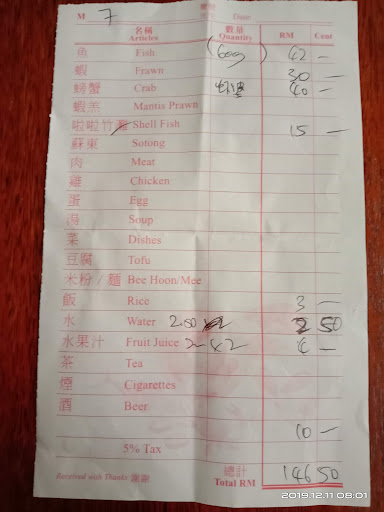 M 7 Date
名稱 數量
Articles Quantity RM Cent
魚 Fish (600g) 42 —
蝦 Frawn 30 —
螃蟹 Crab 40 —
蝦羔 Mantis Prawn
啦啦竹蟶 Shell Fish 15 —
蘇東 Sotong
肉 Meat
雞 Chicken
蛋 Egg
湯 Soup
菜 Dishes
豆腐 Tofu
米粉 / 麵 Bee Hoon/Mee
飯 Rice 3 —
水 Water 2.50 2 50
水果汁 Fruit Juice 2 — x2 4 —
茶 Tea
煙 Cigarettes
酒 Beer
10 —
5% Tax
總計
Received with Thanks 謝謝 Total RM 146 50
2019.12.11 08:01